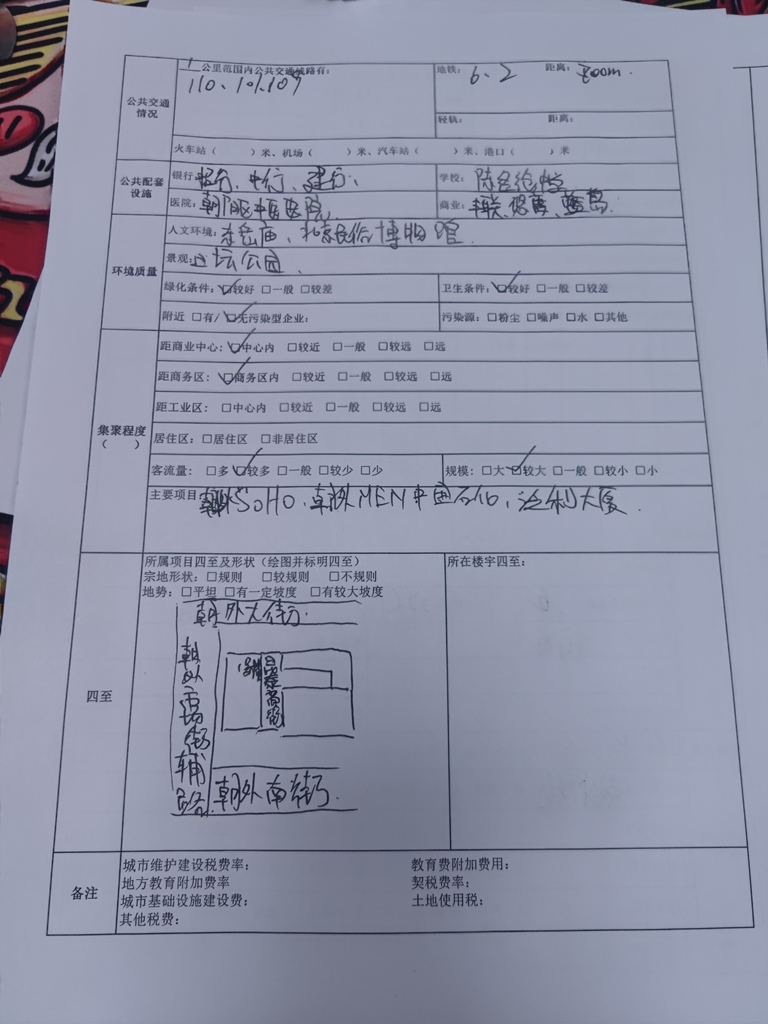 公共交通情况
1公里范围内公共交通线路有:
110、101、109
地铁: 6、2 距离: 800m.
轻轨: 距离:
火车站( )米、机场( )米、汽车站( )米、港口( )米
公共配套设施
银行: 招行、中行、建行、
学校: 陈经纶中学
医院: 朝阳中医医院
商业: 丰联、悠唐、蓝岛
环境质量
人文环境: 东岳庙、北京民俗博物馆
景观: 日坛公园.
绿化条件: ☑较好 □一般 □较差
卫生条件: ☑较好 □一般 □较差
附近 □有/☑无污染型企业:
污染源: □粉尘 □噪声 □水 □其他
集聚程度
( )
距商业中心: ☑中心内 □较近 □一般 □较远 □远
距商务区: ☑商务区内 □较近 □一般 □较远 □远
距工业区: □中心内 □较近 □一般 □较远 □远
居住区: □居住区 □非居住区
客流量: □多 ☑较多 □一般 □较少 □少
规模: □大 ☑较大 □一般 □较小 □小
主要项目: 朝外SOHO、朝外MEN 中国石化、泛利大厦.
四至
所属项目四至及形状(绘图并标明四至)
宗地形状: □规则 □较规则 □不规则
地势: □平坦 □有一定坡度 □有较大坡度
所在楼宇四至:
朝外大街
朝外市场街辅路
朝外南街
备注
城市维护建设税费率:
教育费附加费用:
地方教育附加费率
契税费率:
城市基础设施建设费:
土地使用税:
其他税费: